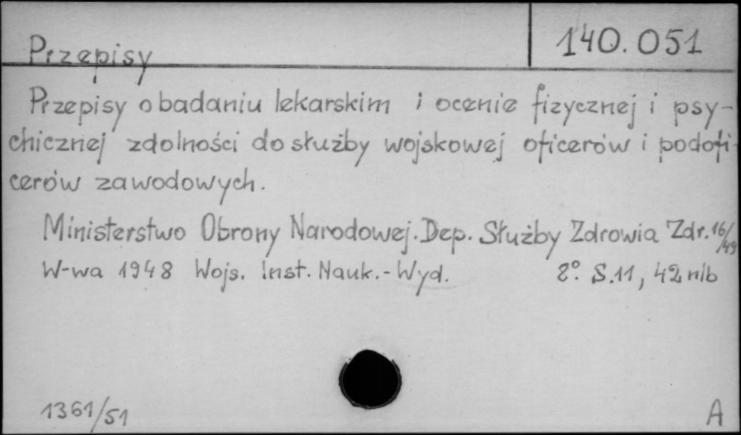 Przepisy 140.051
Przepisy o badaniu lekarskim i ocenie fizycznej i psy-
chicznej zdolności do służby wojskowej oficerów i podofi
cerów zawodowych.
Ministerstwo Obrony Narodowej. Dep. Służby Zdrowia Zdr. 16/49
W-wa 1948 Wojs. Inst. Nauk.-Wyd. 8° S.11, 42 nlb
1361/51 A